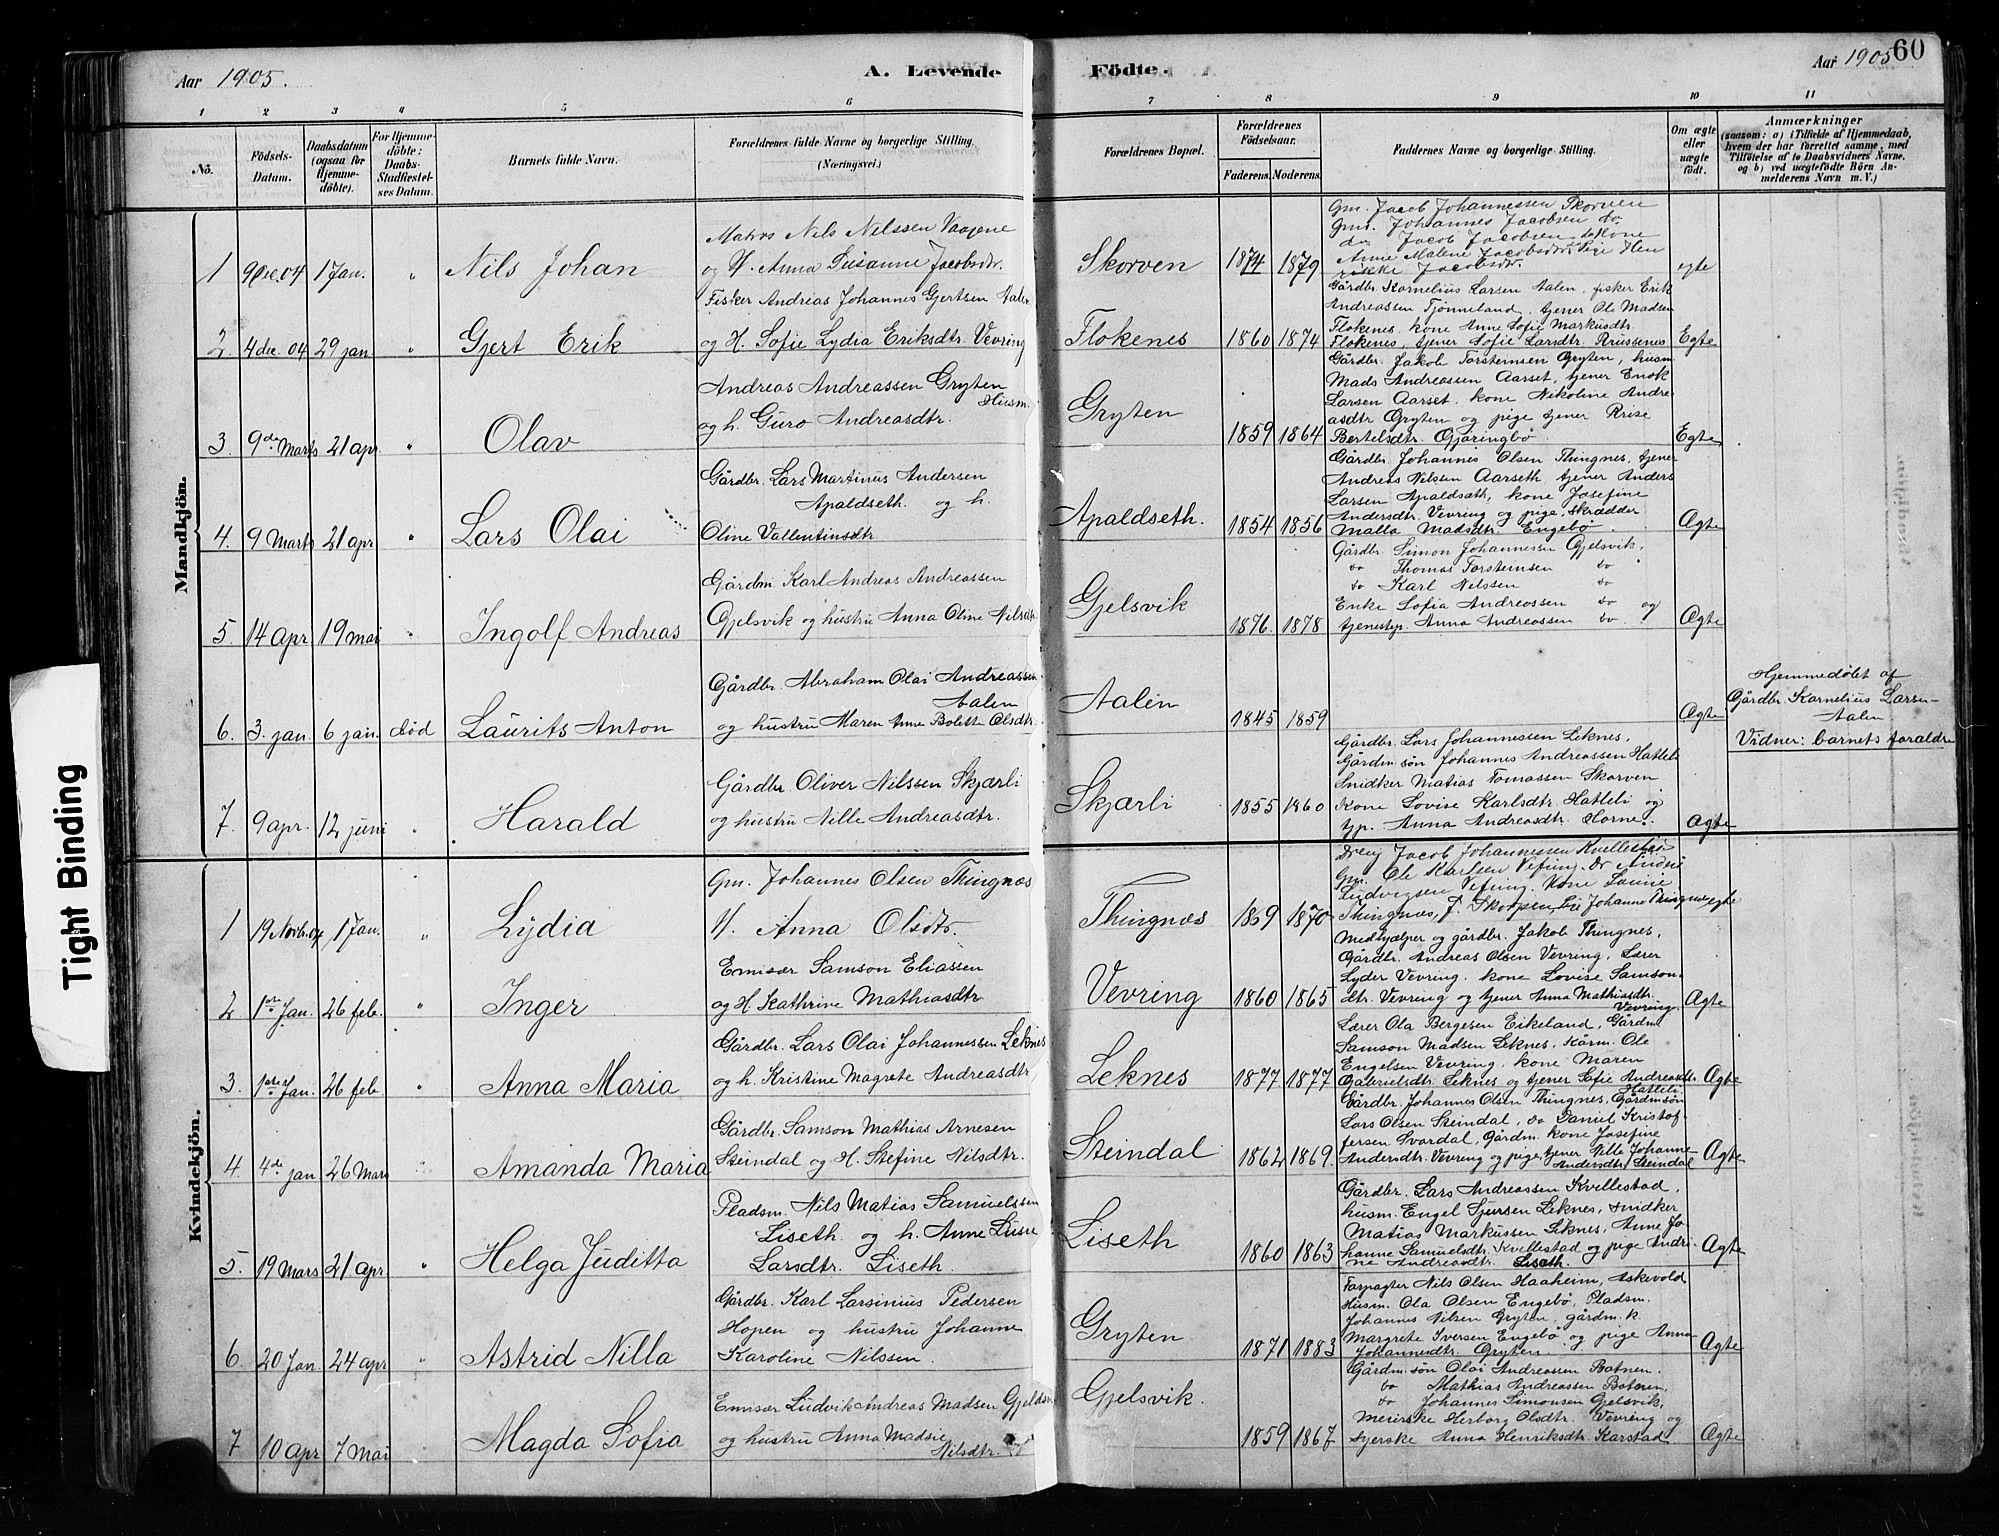 Aar 1905.
A. Levende
Födte.
Aar 1905
60
1 2 3 4 5 6 7 8 9 10 11
No.
Födsels-
Datum.
Daabsdatum
(ogsaa for
Hjemme-
döbte).
For Hjemme-
döbte:
Daabs-
Stadfæstel-
ses Datum.
Barnets fulde Navn.
Forældrenes fulde Navne og borgerlige Stilling.
(Næringsvei.)
Forældrenes Bopæl.
Forældrenes
Födselsaar.
Faderens. Moderens.
Faddernes Navne og borgerlige Stilling.
Om ægte
eller
uægte
födt.
Anmærkninger
(saasom: a) i Tilfælde af Hjemmedaab,
hvem der har forrettet samme, med
Tilföielse af to Daabsvidners Navne,
og b) ved uægtefödte Börn An-
melderens Navn m. V.)
Mandkjön.
1 9 Dec. 04 1 Jan. " Nils Johan
Matros Nils Nilssen Vaagene
og H. Anna Susanne Jacobsdtr.
Skorven 1874 1879
Gm. Jacob Johannessen Skorven
Gms. Johannes Jacobsen do
do Jacob Jacobsen do Kone
Anne Malene Jacobsdtr. Pige Hen
rikke Jacobsdtr.
egte
2 4 dec. 04 29 jan " Gjert Erik
Fisker Andreas Johannes Gjertsen Aalen
og H. Sofie Lydia Eriksdtr. Vevring
Flokenes 1860 1874
Gårdbr. Kornelius Larsen Aalen, fisker Erik
Andreassen Tjönneland, tjener Ole Madsen
Flokenes, kone Anne Sofie Markusdtr.
Flokenes, tjener Sofie Larsdtr.
Egte
3 9de Marts 21 apr. " Olav
Andreas Andreassen Gryten
Husm.
og h. Guro Andreasdtr.
Gryten 1859 1864
Gårdbr. Jakob Torsteinsen Gryten, husm
Mads Andreassen Aarset, tjener Enok
Larsen Aarset, kone Nikoline Andre
asdtr Gryten og pige tjener
Bertelsdtr. Gjöringbö.
Egte
4. 9 Marts 21 apr " Lars Olai
Gårdbr. Lars Martinus Andersen
Apaldseth. og h.
Oline Vallentinsdtr
Apaldseth. 1854 1856
Gårdbr. Johannes Olsen Thingnes, tjener
Andreas Nilssen Aarseth, tjener Anders
Larsen Apaldsæth, kone Josefine
Andersdtr Vevring og pige, skrædder
Malla Madsdtr. Engebö.
Ægte
5 14 apr. 19 mai " Ingolf Andreas
Gårdm Karl Andreas Andreassen
Gjelsvik og hustru Anna Oline Nilsdtr.
Gjelsvik 1876. 1878
Gårdbr. Simon Johannessen Gjelsvik,
do Thomas Torsteinsen do
do Karl Nilssen do
Enke Sofia Andreassen do og
tjenestep. Anna Andreassen do.
Ægte
6. 3. jan. 6 jan. död Laurits Anton
Gårdbr. Abraham Olai Andreassen
Aalen
og hustru Maren Anne Bolette Olsdtr.
Aalen 1845 1859
Ægte
Hjemmedöbt af
Gårdbr. Kornelius Larsen
Aalen
Vidner: barnets foraldre
7. 9 apr. 12 juni " Harald
Gårdbr Oliver Nilssen Skjærli
og hustru Nille Andreasdtr.
Skjærli 1855 1860
Gårdbr. Lars Johannessen Leknes,
Gårdm. sön Johannes Andreassen Hatleli
Snidker Matias Tomassen Skorven
Kone Lovise Karlsdtr. Hatleli og
tjp. Anna Andreasdtr. Horne.
Ægte
Kvindekjön.
1 19 Novb. 04 1 Jan. " Lydia
Gm. Johannes Olsen Thingnæs
H. Anna Olsdtr.
Thingnæs 1859 1870
Dreng Jacob Johannessen Kvellestad
Gm. Ole Karlsen Vefring. Dr
Ludvigsen Vefring. Kone
Thingnæs, Johanne Thingnæs
egte
2 1ste Jan. 26 feb. " Inger
Emisær Samson Eliassen
og H. Kathrine Mathiasdtr.
Vevring 1860 1865
Medhjælper og gårdbr. Jakob Thingnes,
Gårdbr. Andreas Olsen Vevring, Lærer
Lyder Vevring, kone Lovise Samson-
dtr. Vevring og tjener Anna Mathiasdtr.
Vevring.
Ægte
3. 1ste Jan. 26 feb. " Anna Maria
Gårdbr. Lars Olai Johannessen Leknes
og h. Kristine Magrete Andreasdtr
Leknes 1877 1877
Lærer Ola Bergesen Eikeland, Gårdm.
Samson Madsen Leknes, Kårm. Ole
Engelsen Vevring, kone Maren
Gabrielsdtr. Leknes og tjener Sofie Andreasdtr.
Hatleli
Ægte
4. 4de jan 26 Mars " Amanda Maria
Gårdbr. Samson Mathias Arnesen
Steindal og H. Stefine Nilsdtr.
Steindal 1862 1869.
Gårdbr. Johannes Olsen Thingnes, Gårdmsön
Lars Olsen Steindal, do Daniel Kristof-
fersen Svardal, Gårdm. kone Josefine
Andersdtr. Vevring og pige, tjener Nille Johanne
Andersdtr. Steindal
Ægte
5. 19 Mars 21 apr. " Helga Juditta
Pladsm. Nils Matias Samuelssen
Liseth og h. Anne Lisne
Larsdtr. Liseth.
Liseth 1860 1863
Gårdbr. Lars Andreassen Kvellestad,
husm. Engel Sjursen Leknes, snidker
Matias Markussen Leknes, Anne Jo-
hanne Samuelsdtr. Kvellestad og pige Andri-
ne Andreasdtr. Liseth.
Ægte
6. 20 Jan. 24 apr " Astrid Nilla
Gårdbr. Karl Larsinius Pedersen
Hopen og hustru Johanne
Karoline Nilssen.
Gryten 1871 1883
Forpagter Nils Olsen Haaheim, Askevold
Husm. Ola Olsen Engebö, Pladsm.
Johannes Nilsen Gryten, gårdm. k.
Margrete Iversen Engebö og pige Anna
Johannesdtr. Gryten.
Ægte
7 10 apr 7 Mai " Magda Sofia
Emisær Ludvik Andreas Madsen
og hustru Anna Madsie
Nilsdtr.
Gjelsvik. 1859 1867
Gårdm. sön Olai Andreassen Botnen,
do Mathias Andreassen Botnen,
do Johannes Simonsen Gjelsvik,
Meierske Herborg Olsdtr. Vevring og
syerske Anna Henriksdtr. Karstad
Ægte
Tight Binding